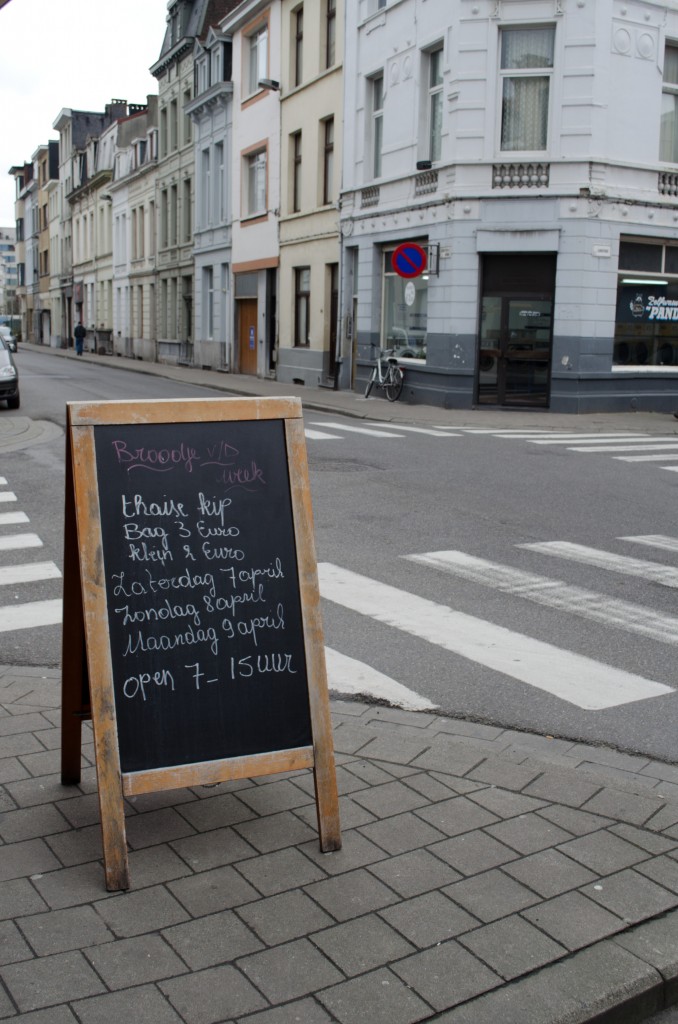 Broodje v/D
week
thaise kip
Bag 3 Euro
klein 2 Euro
Zaterdag 7 april
Zondag 8 april
Maandag 9 april
open 7 - 15 uur
"PAND